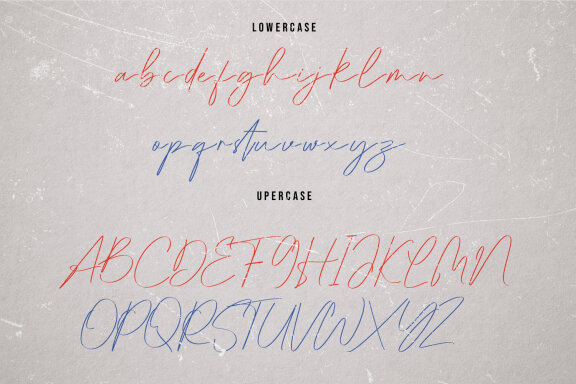 LOWERCASE
abcdefghijklmn
opqrstuvwxyz
UPERCASE
ABCDEFGHIJKLMN
OPQRSTUVWXYZ